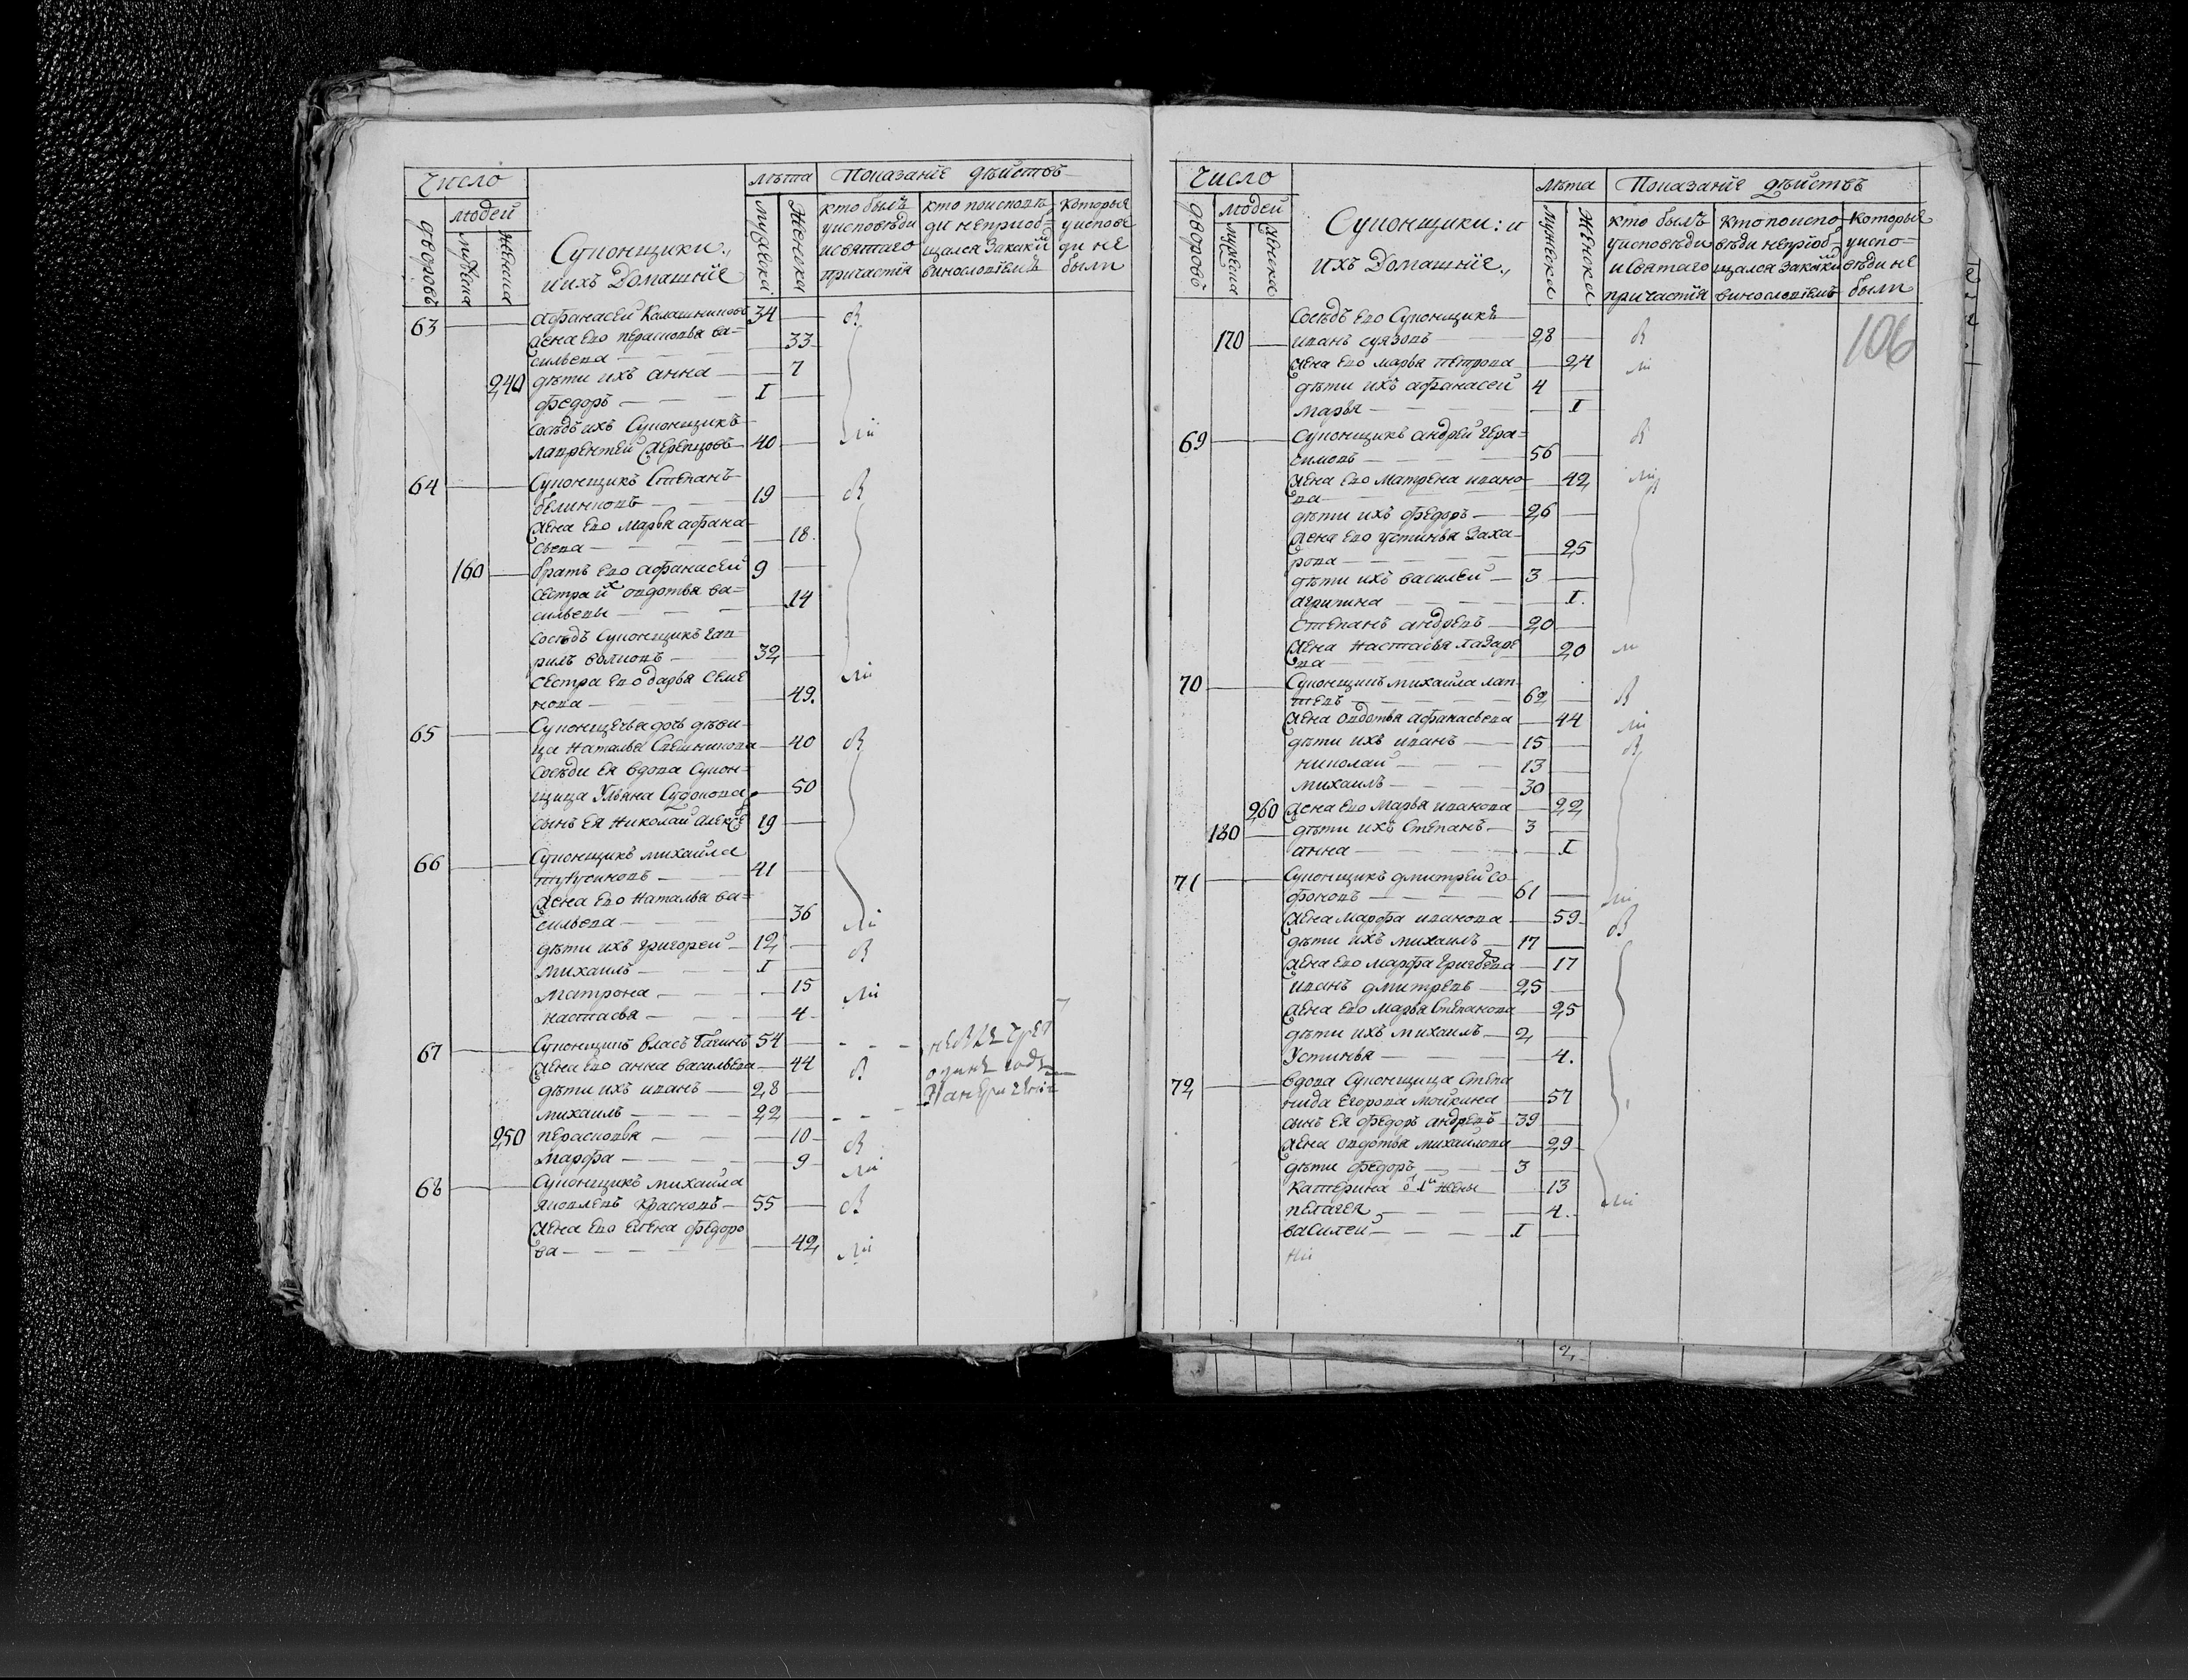 Число
Лѣта
Показанїе дѣйствъ
дворовъ
людей
мужеска
женска
Суконщики.,
и ихъ Домашнїе
мужеска
женска
кто былъ
у исповѣди
и святаго
причастїя
кто по исповѣ
ди не прїоб=
щался За каки
винословїемъ
Которыя
у испове
ди не
были
63
афанасей Калашниковъ 34
Жена Ево перасковья ва=
сильева 33
240 дѣти ихъ анна 7
федоръ I
Сосѣдъ ихъ Суконщикъ
лаврентей 40
64 Суконщикъ Степанъ
бѣлинковъ 19
Жена Ево Марья афана
сьева 18.
160 братъ Ево афанасей 9
Сестра их овдотья ва=
сильевы 14
Сосѣдъ Суконщикъ гав
рилъ волковъ 32
Сестра Ево дарья Семе
нова 49.
65 Суконщичья дочь дѣви
ца Наталья 40
Сосѣди Ея вдова Сукон=
щица Ульяна 50
Сынъ Ея Николай алексѣ 19
66 Суконщикъ михайла
41
Жена Ево Наталья ва=
сильева 36
дѣти ихъ григорей 12
михаилъ I
матрона 15
настасья 4
67 Суконщикъ власъ 54
Жена Ево анна васильева 44
дѣти ихъ иванъ 28
михаилъ 22
250 перасковья 10
марфа 9
68 Суконщикъ михайла
яковлевъ Красновъ 55
Жена Ево Елена федоро
ва 42
Число
Лѣта
Показанїе дѣйствъ
дворовъ
людей
мужеска
женска
Суконщики: и
ихъ Домашнїе.,
мужеска
женска
кто былъ
у исповѣди
и Святаго
причастїя
Кто по испо
вѣди не прїоб=
щался За каки
винословїемъ
Которыя
у испо=
вѣди не
были
106
Сосѣдъ Ево Суконщикъ
170 иванъ 28
Жена Ево марья петрова 24
дѣти ихъ афанасей 4
марья I
69 Суконщикъ андрей гера=
симовъ 56
Жена Ево матрена ивано
ва 42
дѣти ихъ федоръ 26
Жена Ево устинья Заха
рова 25
дѣти ихъ василей 3
агрипина I.
Степанъ андреевъ 20
Жена Настасья лазаре
ва 20
70 Суконщикъ михайла лап
тевъ 62
Жена овдотья афанасьева 44
дѣти ихъ иванъ 15
николай 13
михаилъ 30
260 Жена Ево Марья иванова 22
180 дѣти ихъ Степанъ 3
анна I
71 Суконщикъ дмитрей со
фоновъ 61
Жена марфа иванова 59
дѣти ихъ михаилъ 17
Жена Ево марфа 17
иванъ дмитревъ 25
Жена Ево марья Степанова 25
дѣти ихъ михаилъ 2
Устинья 4.
72 вдова Суконщица Степа
нида Егорова мойкина 57
сынъ Ея федоръ андревъ 39
Жена овдотья михайлова 29
дѣти федоръ 3
Катерина о 1й жены 13
пелагея 4.
василей I